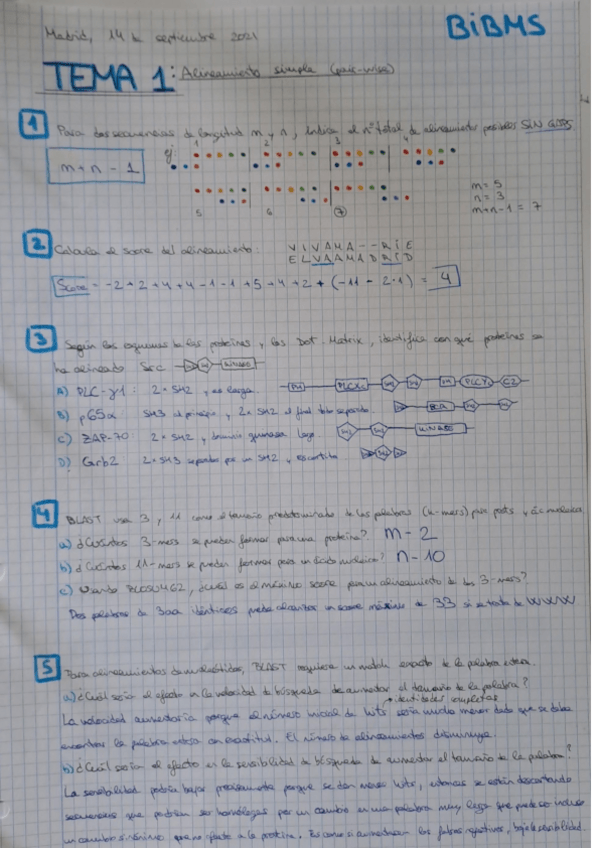 Madrid, 14 de septiembre 2021
BiBMS
TEMA 1: Alineamiento simple (pair-wise)
1 Para dos secuencias de longitud m y n, indica el nº total de alineamientos posibles SIN GAPS
m + n - 1
ej:
1 2 3 4
5 6 7
m = 5
n = 3
m+n-1 = 7
2 Calcula el score del alineamiento:
V I V A M A - - R I E
E L V A A M A D R I D
Score = -2 + 2 + 4 + 4 - 1 - 1 + 5 + 4 + 2 + (-11 - 2·1) = 4
3 Según los esquemas de las proteínas y las Dot Matrix, identifica con qué proteínas se
ha alineado Src
KINASE
A) PLC-γ1: 2 x SH2, es larga.
B) p65α: SH3 al principio, 2x SH2 al final separado.
C) ZAP-70: 2 x SH2, dominio quinasa largo.
KINASE
D) Grb2: 2 x SH3 separados por un SH2, es cortita
4 BLAST usa 3, 11 como el tamaño predeterminado de las palabras (k-mers) para prots y ác. nucleicos
a) ¿Cuántos 3-mers se pueden formar para una proteína? m - 2
b) ¿Cuántos 11-mers se pueden formar para un ácido nucleico? n - 10
c) Usando BLOSUM62, ¿cuál es el máximo score para un alineamiento de dos 3-mers?
Dos palabras de 3aa idénticos puede alcanzar un score máximo de 33 si se trata de WWW
5 Para alineamientos de nucleótidos, BLAST requiere un match exacto de la palabra entera.
a) ¿Cuál sería el efecto en la velocidad de búsqueda de aumentar el tamaño de la palabra?
identidades completas
La velocidad aumentaría porque el número inicial de hits sería mucho menor dado que se debe
encontrar la palabra entera con exactitud. El número de alineamientos disminuye.
b) ¿Cuál sería el efecto en la sensibilidad de búsqueda de aumentar el tamaño de la palabra?
La sensibilidad podría bajar precisamente porque se dan menos hits, entonces se están descartando
secuencias que podrían ser homólogas por un cambio en una palabra muy larga que puede ser incluso
un cambio sinónimo que no afecte a la proteína. Es como si aumentaran los falsos negativos, baja la sensibilidad.